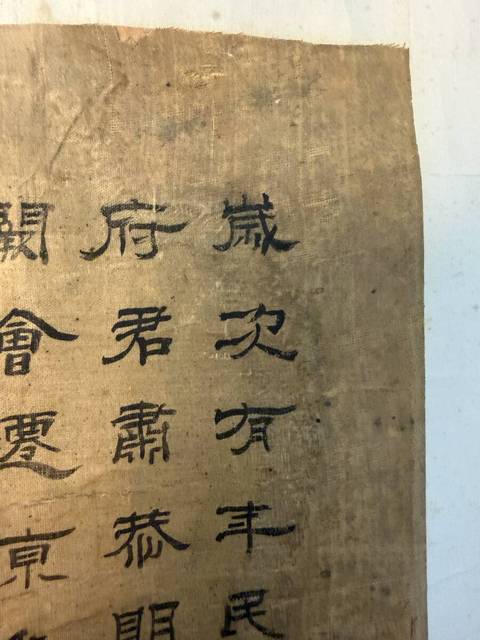 歲次有年民
府君肅恭明
闕會遷京